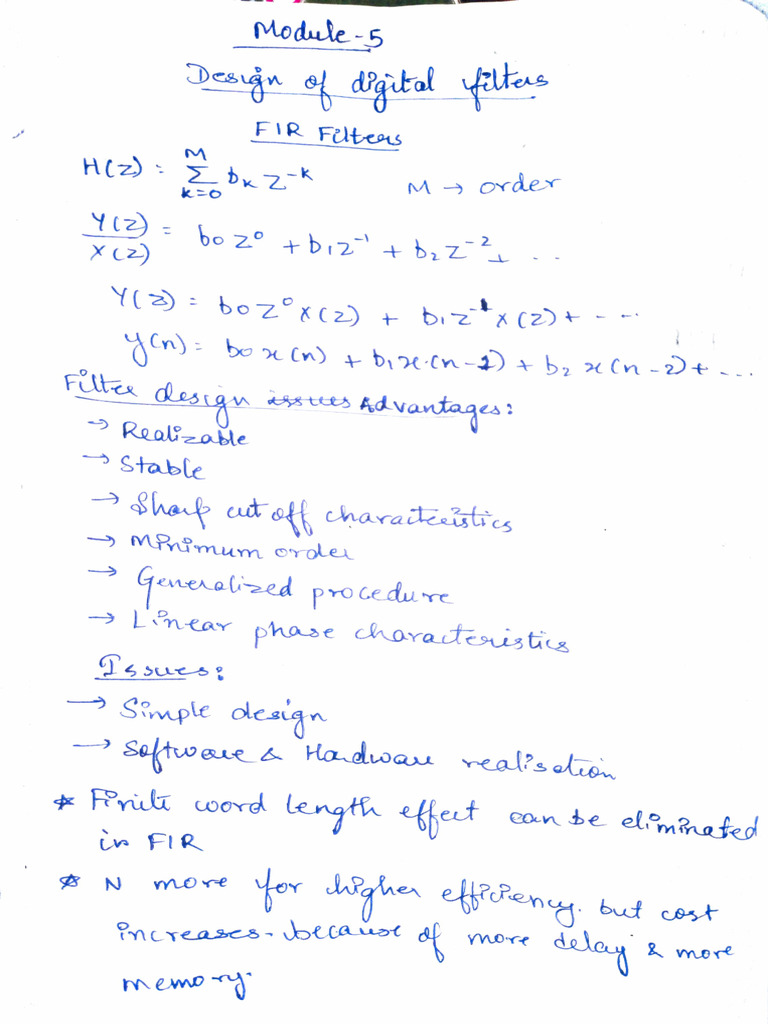 Module-5
Design of digital filters
FIR Filters
H(z) = M Σ k=0 bk z^-k    M → order
Y(z)/X(z) = b0 z^0 + b1 z^-1 + b2 z^-2 + ...
Y(z) = b0 z^0 X(z) + b1 z^-1 X(z) + ----
y(n) = b0 x(n) + b1 x(n-1) + b2 x(n-2) + ...
Filter design issues Advantages:
→ Realizable
→ Stable
→ Sharp cut off characteristics
→ Minimum order
→ Generalized procedure
→ Linear phase characteristics
Issues:
→ Simple design
→ Software & Hardware realisation
* Finite word length effect can be eliminated
in FIR
* N more for higher efficiency. but cost
increases. because of more delay & more
memory.